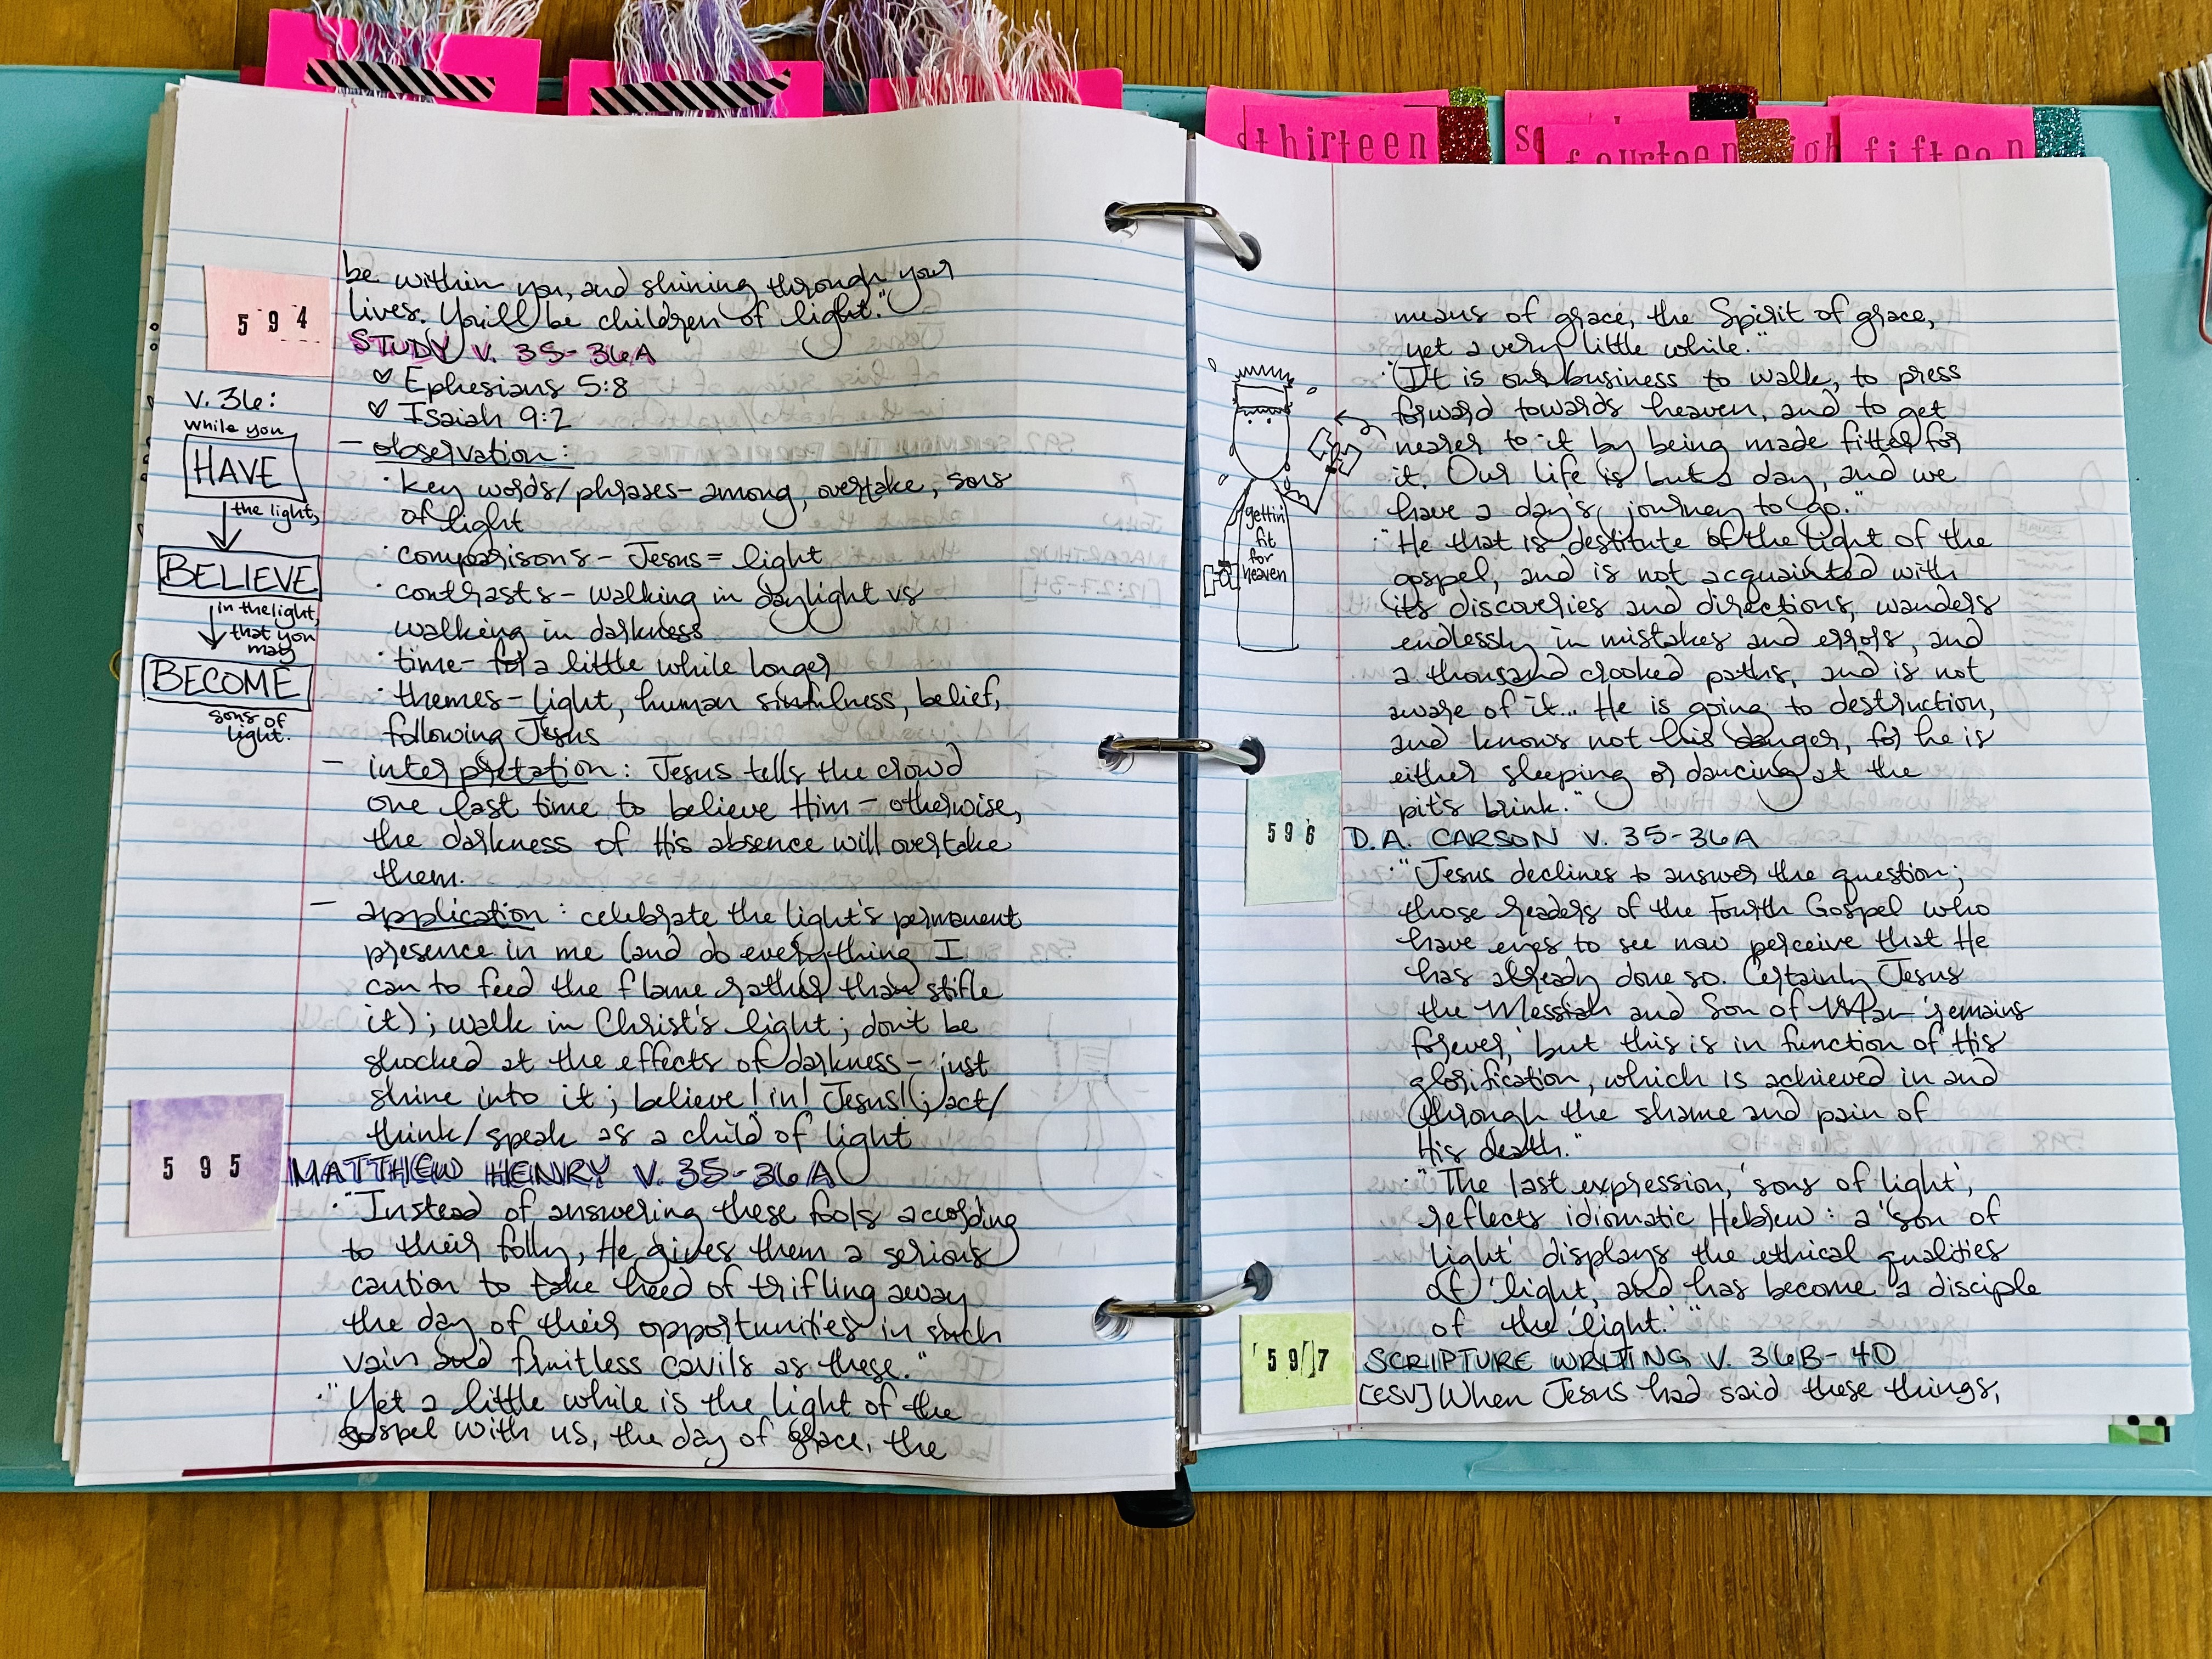 thirteen
fourteen
fifteen
594
be within you, and shining through your
lives. You'll be children of light."
STUDY V. 35-36A
♡ Ephesians 5:8
♡ Isaiah 9:2
- observation:
· key words/phrases - among, overtake, sons
of light
· comparisons - Jesus = light
· contrasts - walking in daylight vs
walking in darkness
· time - for a little while longer
· themes - light, human sinfulness, belief,
following Jesus
- interpretation: Jesus tells the crowd
one last time to believe Him - otherwise,
the darkness of His absence will overtake
them.
- application: celebrate the light's permanent
presence in me (and do everything I
can to feed the flame rather than stifle
it); walk in Christ's light; don't be
shocked at the effects of darkness - just
shine into it; believe! in! Jesus!(; act/
think/speak as a child of light
v. 36:
while you
HAVE
the light,
BELIEVE
in the light,
that you
may
BECOME
sons of
light.
595
MATTHEW HENRY V. 35-36A
· "Instead of answering these fools according
to their folly, He gives them a serious
caution to take heed of trifling away
the day of their opportunities in such
vain and fruitless cavils as these."
· "Yet a little while is the light of the
gospel with us, the day of grace, the
means of grace, the Spirit of grace,
yet a very little while."
· "It is our business to walk, to press
forward towards heaven, and to get
nearer to it by being made fitter for
it. Our life is but a day, and we
have a day's journey to go."
· "He that is destitute of the light of the
gospel, and is not acquainted with
its discoveries and directions, wanders
endlessly in mistakes and errors, and
a thousand crooked paths, and is not
aware of it... He is going to destruction,
and knows not his danger, for he is
either sleeping or dancing at the
pit's brink."
gettin'
fit
for
heaven
596
D.A. CARSON V. 35-36A
· "Jesus declines to answer the question;
those readers of the Fourth Gospel who
have eyes to see now perceive that He
has already done so. Certainly Jesus
the Messiah and Son of Man 'remains
forever,' but this is in function of His
glorification, which is achieved in and
through the shame and pain of
His death."
· "The last expression, 'sons of light',
reflects idiomatic Hebrew: a 'son of
light' displays the ethical qualities
of 'light', and has become a disciple
of the 'light.'"
597
SCRIPTURE WRITING V. 36B-40
[ESV] When Jesus had said these things,